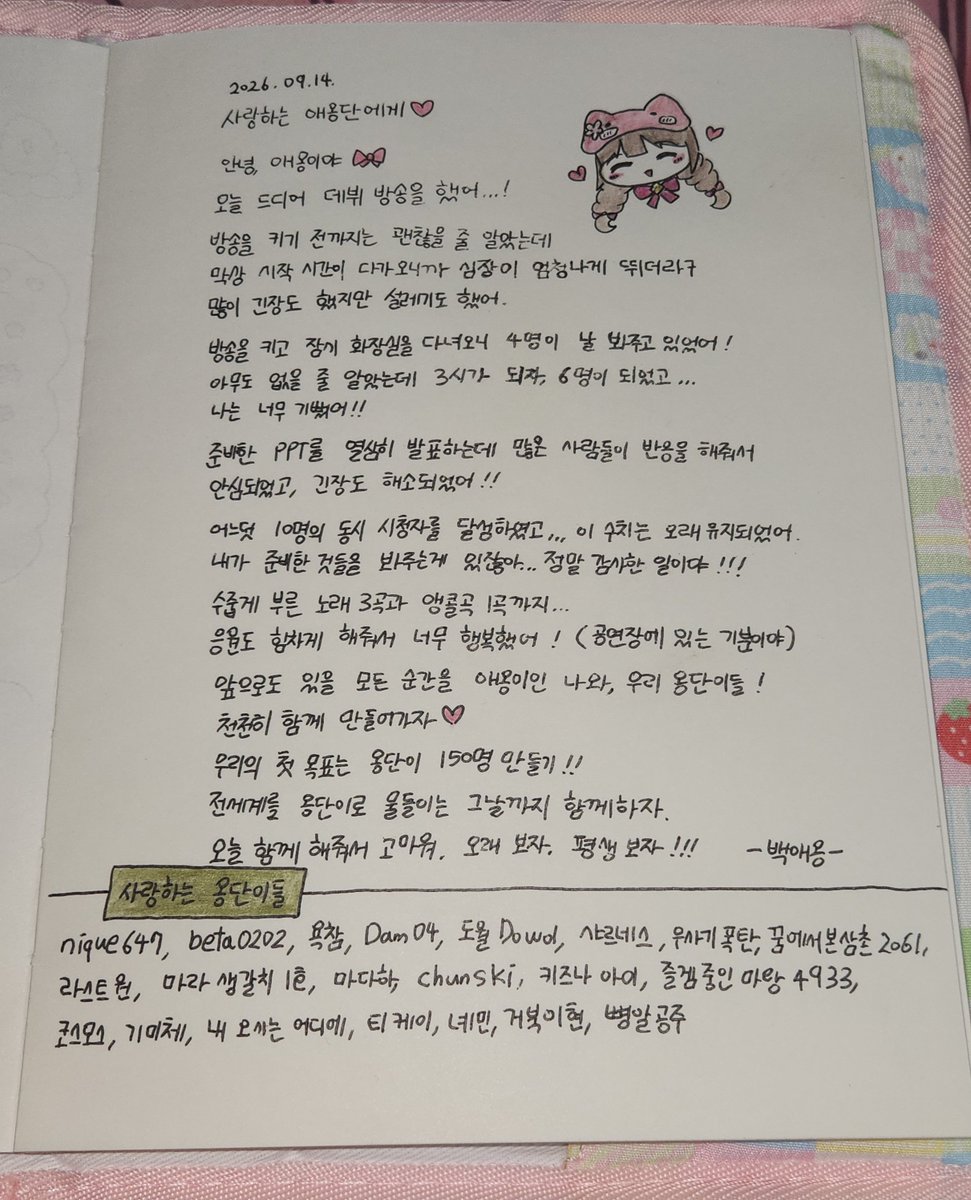 2026.09.14.
사랑하는 애용단에게♡
안녕, 애용이야
오늘 드디어 데뷔 방송을 했어...!
방송을 키기 전까지는 괜찮을 줄 알았는데
막상 시작 시간이 다가오니까 심장이 엄청나게 뛰더라구
많이 긴장도 했지만 설레기도 했어.
방송을 키고 잠시 화장실을 다녀오니 4명이 날 봐주고 있었어!
아무도 없을 줄 알았는데 3시가 되자, 6명이 되었고...
나는 너무 기뻤어!!
준비한 PPT를 열심히 발표하는데 많은 사람들이 반응을 해줘서
안심되었고, 긴장도 해소되었어!!
어느덧 10명의 동시 시청자를 달성하였고,,, 이 수치는 오래 유지되었어.
내가 준비한 것들을 봐주는게 있잖아... 정말 감사한 일이야!!!
수줍게 부른 노래 3곡과 앵콜곡 1곡까지...
응원도 힘차게 해줘서 너무 행복했어! (공연장에 있는 기분이야)
앞으로도 있을 모든 순간을 애용이인 나와, 우리 용단이들!
천천히 함께 만들어가자♡
우리의 첫 목표는 용단이 150명 만들기!!
전세계를 용단이로 물들이는 그날까지 함께하자.
오늘 함께 해줘서 고마워. 오래 보자. 평생 보자!!! -백애용-
사랑하는 용단이들
nique647, beta0202, 욕참, Dam04, 도월Dowol, 샤르네스, 우사기폭탄, 꿈에서본삼촌2061,
라스트원, 마라생갈치1호, 마다하, chunski, 키즈나 아이, 즐겜중인 마왕4933,
코스모스, 기미체, 내 오시는 어디에, 티케이, 녜민, 거북이현, 뼝알공주